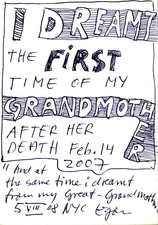 I DREAMT
THE FIRST
TIME OF MY
GRANDMOTHER
AFTER HER
DEATH Feb. 14
2007
"And at
the same time i dreamt
from my Great-Grandmoth
5 VIII 08 NYC